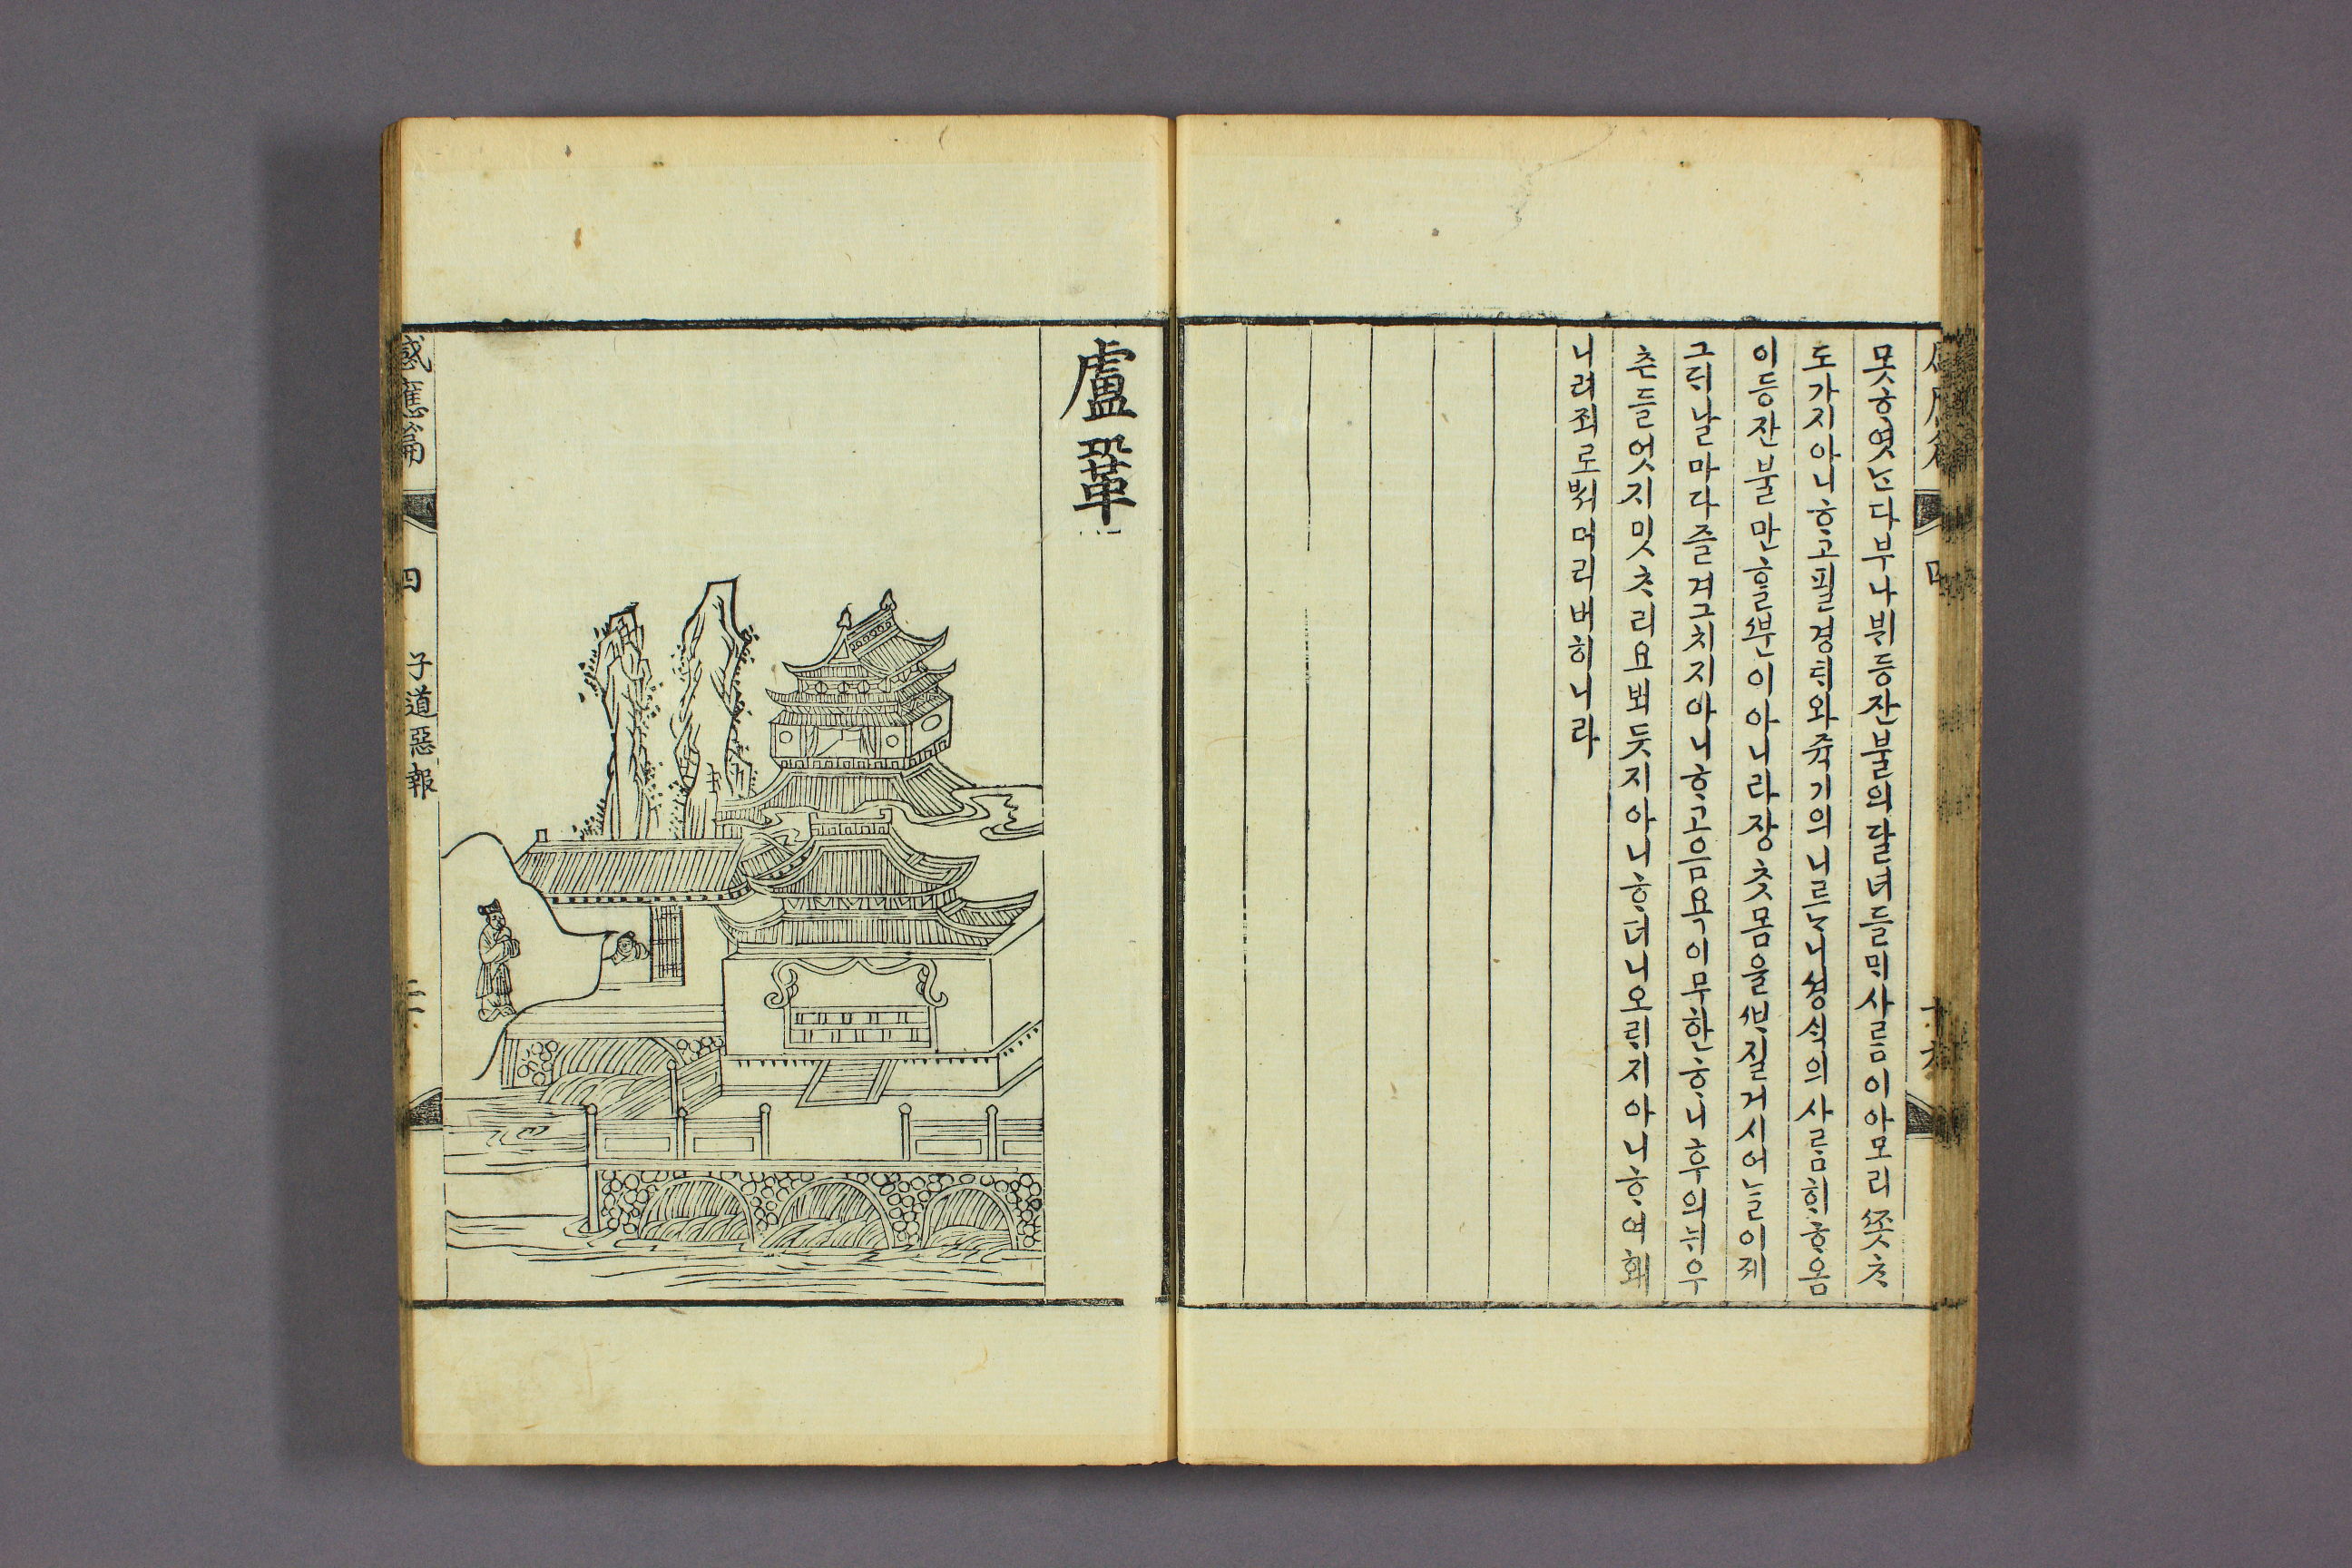 못ᄒᆞ엿ᄂᆞᆫ다부나뷔등잔불의달녀들ᄆᆡ사ᄅᆞᆷ이아모리ᄶᅩᆺᄎᆞ
도가지아니ᄒᆞ고필경ᄐᆡ와쥭기의니르ᄂᆞ니셩ᄉᆡᆨ의사ᄅᆞᆷ희ᄒᆞ옴
이등잔불만ᄒᆞᆯᄲᅮᆫ이아니라장ᄎᆞᆺ몸을ᄇᆞ질거시어ᄂᆞᆯ이제
그ᄃᆡ날마다즐겨그치지아니ᄒᆞ고음욕이무한ᄒᆞ니후의뉘우
ᄎᆞᆫ들엇지밋ᄎᆞ리요뵈듯지아니ᄒᆞ더니오ᄅᆡ지아니ᄒᆞ여홰
니려죄로ᄡᅥ머리버히니라
盧鞏
感應篇 四 子道惡報 二